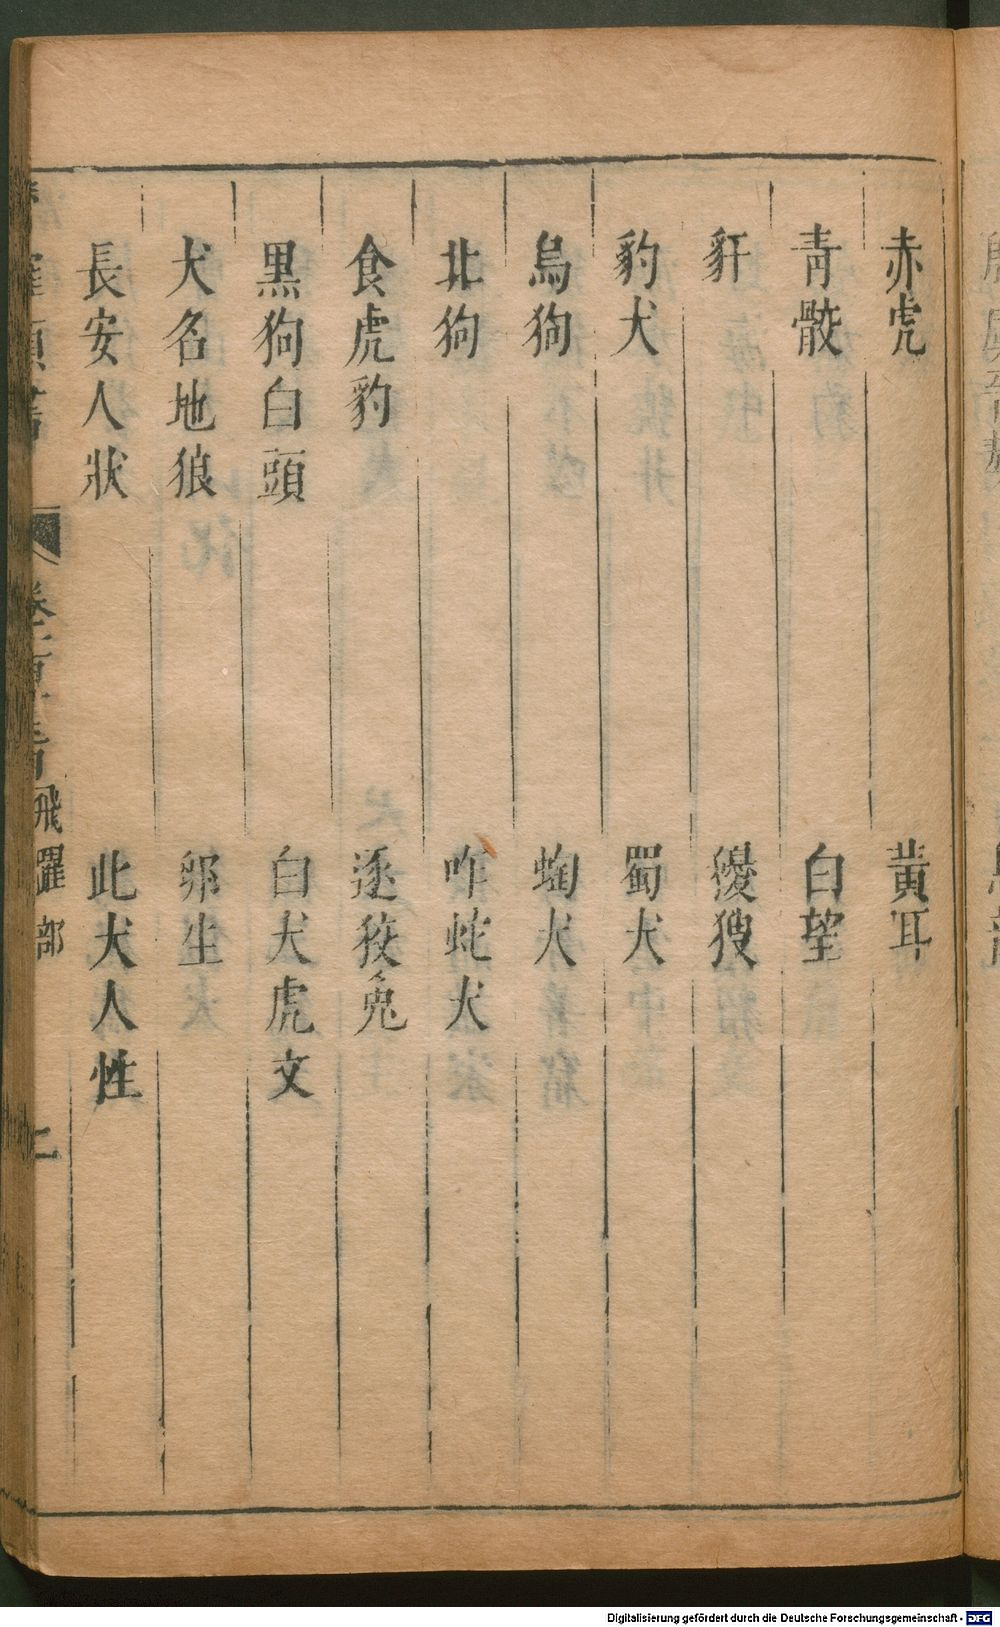 赤虎 黃耳
青骹 白望
豻 獶獀
豹犬 蜀犬
烏狗 蜪犬
北狗 咋蛇犬
食虎豹 逐狡兔
黑狗白頭 白犬虎文
犬名地狼 卵生
長安人狀 此犬人性
飛躍部
二
Digitalisierung gefördert durch die Deutsche Forschungsgemeinschaft - DFG